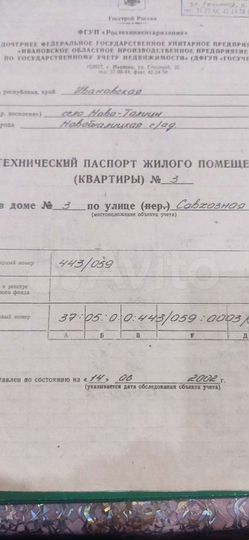 Госстрой России
ФГУП «Ростехинвентаризация»
ДОЧЕРНЕЕ ФЕДЕРАЛЬНОЕ ГОСУДАРСТВЕННОЕ УНИТАРНОЕ ПРЕДПРИ
«ИВАНОВСКОЕ ОБЛАСТНОЕ ПРОИЗВОДСТВЕННОЕ ПРЕДПРИЯТИЕ
ПО ГОСУДАРСТВЕННОМУ УЧЕТУ НЕДВИЖИМОСТИ» (ДФГУП «ГОСУЧЕ
республика, край Ивановская
поселение) село Ново-Талицы
района Новоталицкая с/ад
ТЕХНИЧЕСКИЙ ПАСПОРТ ЖИЛОГО ПОМЕЩЕ
(КВАРТИРЫ) № 3
в доме № 3 по улице (пер.) Совхозная
(местоположение объекта учета)
номер 443/059
в реестре
фонда
номер 37:05:0:0:443/059:0003/
А Б В Г Д
по состоянию на «14» 06 2002 г.
(указывается дата обследования объекта учета)
Avito